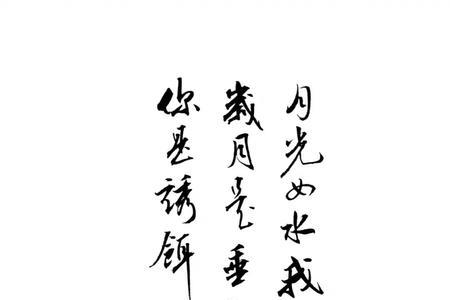 月光如水我
歲月是垂
你是誘餌